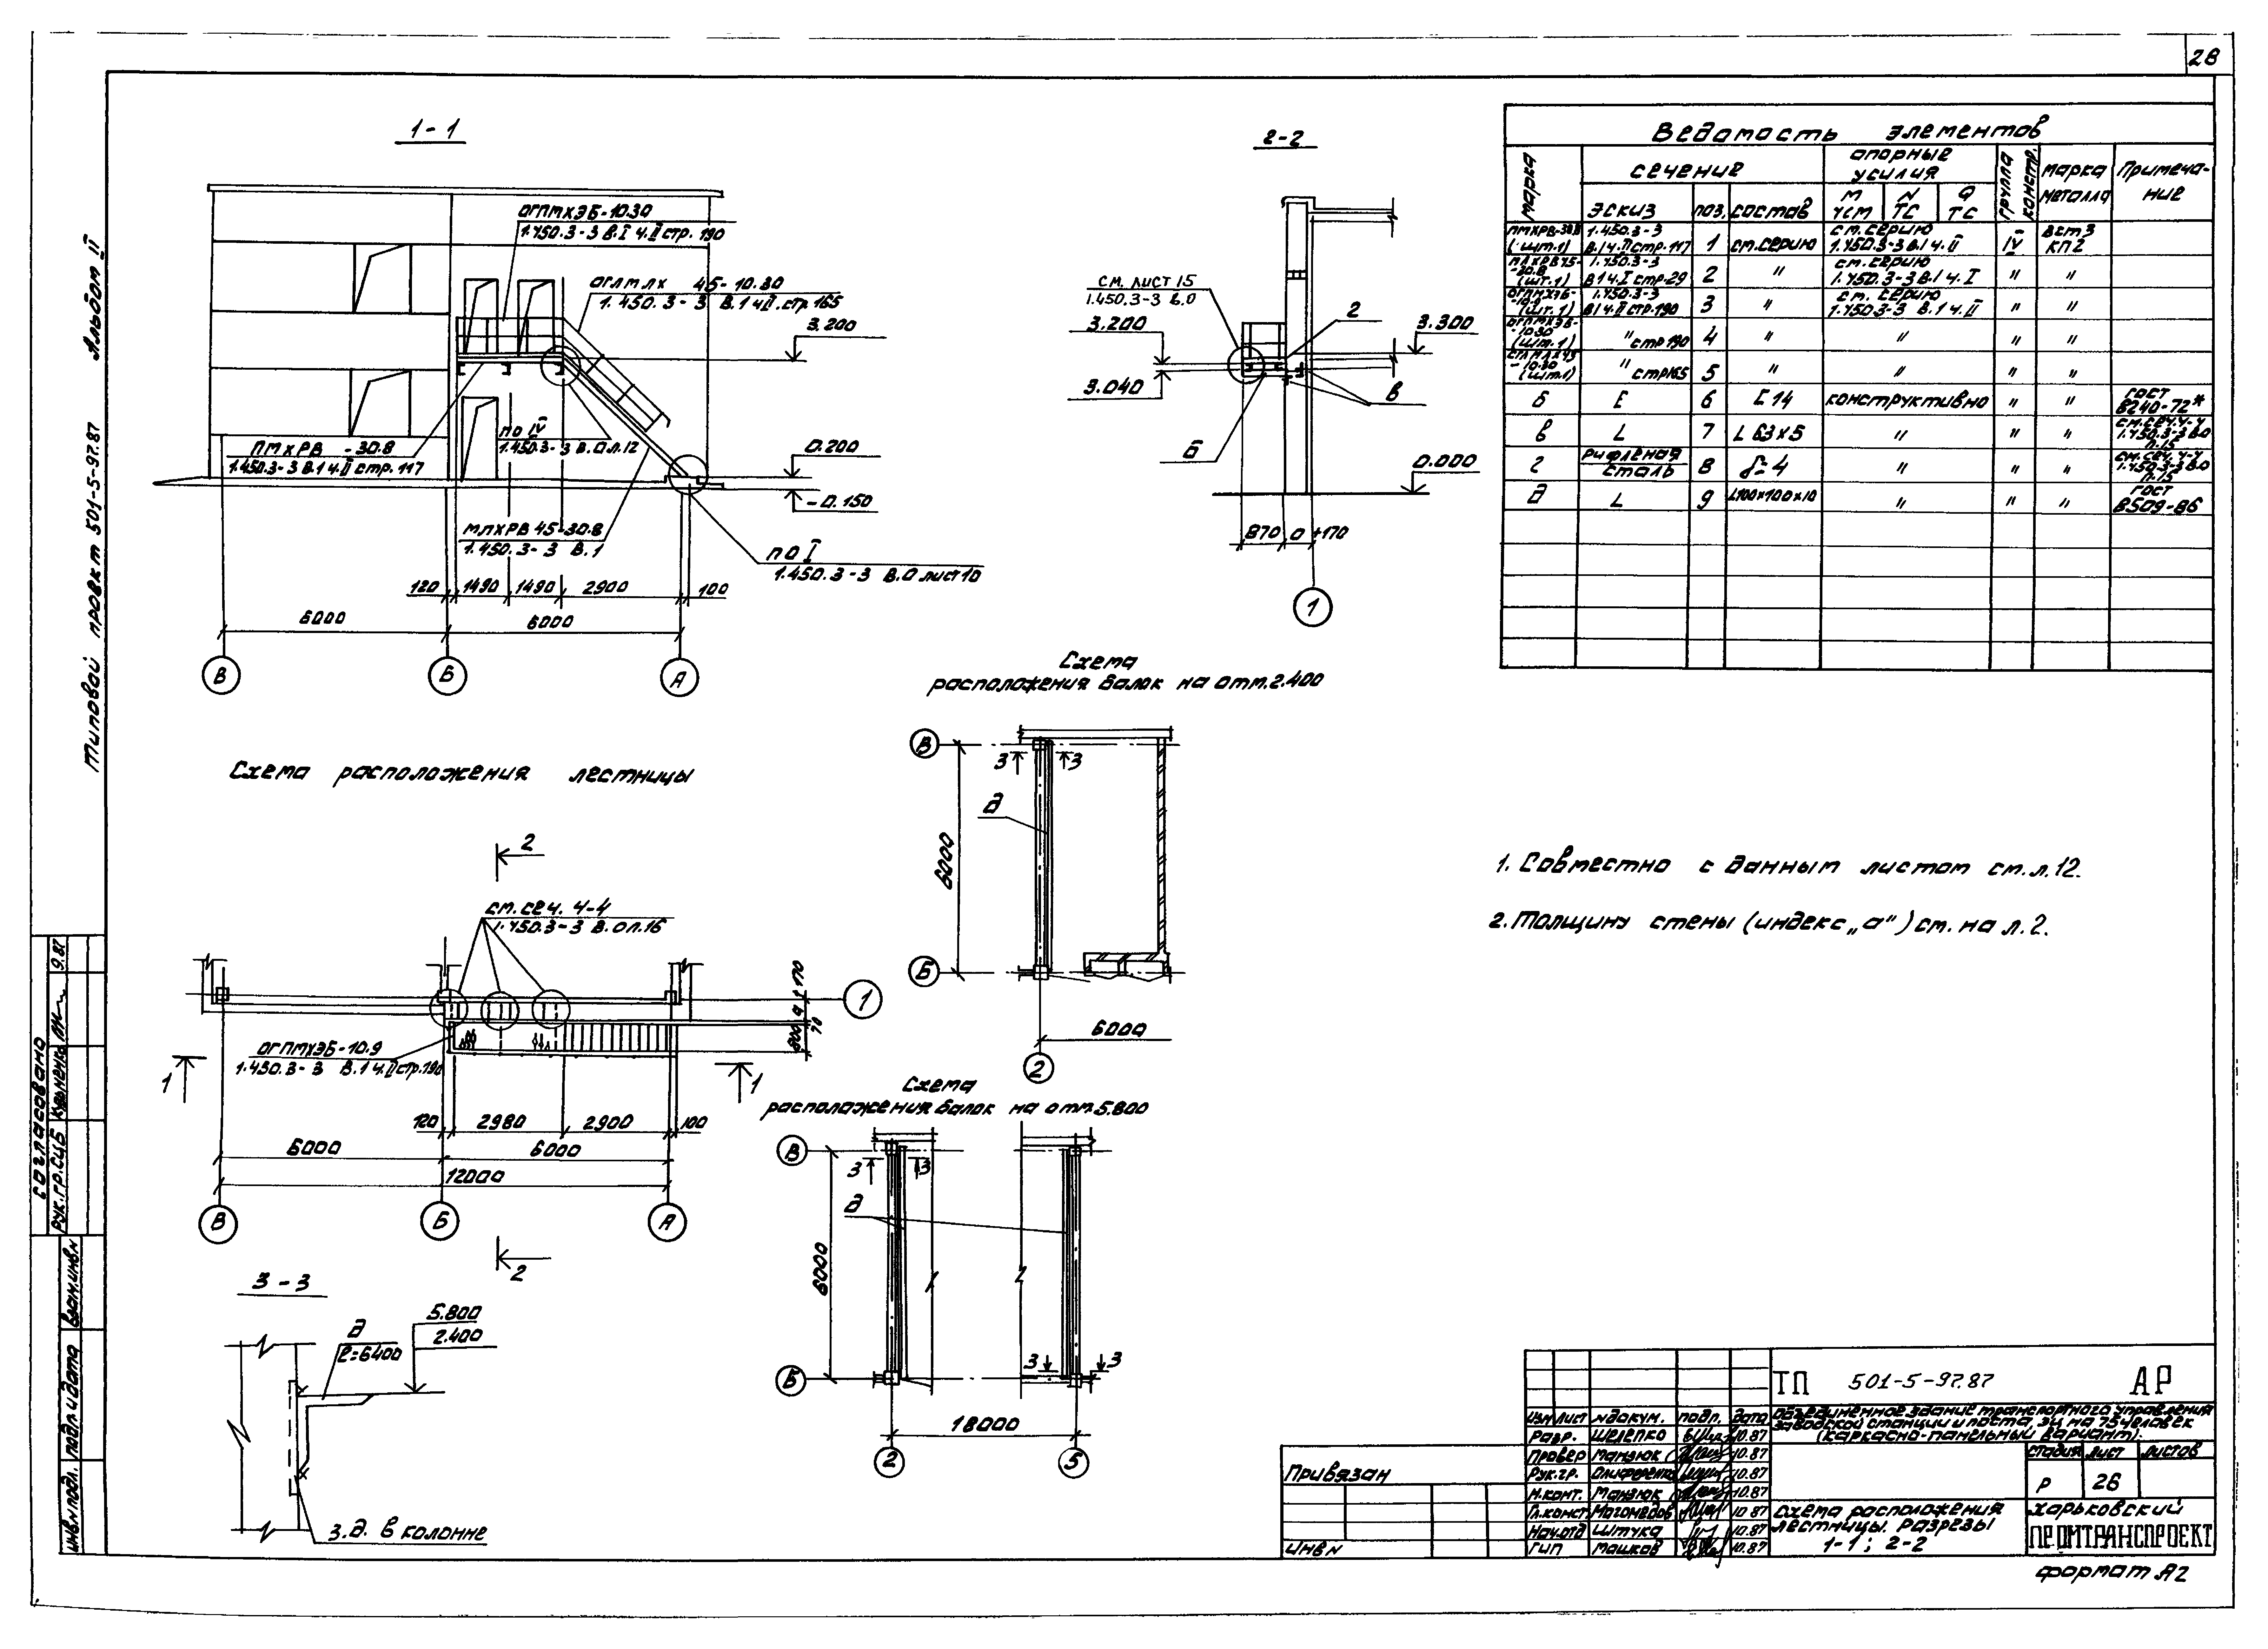 28
Альбом II
Типовой проект 501-5-97.87
1-1
ОГПМХЭБ-10.30
1.450.3-3 В.I ч.II стр. 190
ОГЛМЛХ 45-10.30
1.450.3-3 В.1 ч.II. стр.165
3.200
ПМХРВ -30.8
1.450.3-3 В.1 ч.II стр. 117
по IV
1.450.3-3 В.О л.12
0.200
-0.150
МЛХРВ 45-30.8
1.450.3-3 В.1
по I
1.450.3-3 В.О лист 10
120 1490 1490 2900 100
6000 6000
В Б А
2-2
СМ. ЛИСТ 15
1.450.3-3 В.О
3.200
3.040
2
3.300
в
Б
0.000
870 а +170
1
Ведомость элементов
марка
сечение
опорные усилия
группа констр.
марка металла
Примечание
эскиз
поз.
состав
М тсм
N тс
Q тс
ПМХРВ-30.8 (шт.1) 1.450.3-3 В.1 ч.II стр.117 1 см.серию см.серию 1.450.3-3 В.1 ч.II IV Вст3 КП2
-30.8 (шт.1) 1.450.3-3 В1 ч.I стр.29 2 " см.серию 1.450.3-3 В.1 ч.I " "
(шт.1) 1.450.3-3 В1 ч.II стр.190 3 " см. серию 1.450.3-3 В.1 ч.II " "
ОГПМХЭБ-10.30 (шт.1) " стр 190 4 " " " "
-10.30 (шт.1) " стр165 5 " " " "
Б [ 6 [ 14 конструктивно " " ГОСТ 8240-72*
в L 7 L 63×5 " " " см.сеч.4-4 1.450.3-3 В.О л.15
г рифленая сталь 8 δ=4 " " " см.сеч. 4-4 1.450.3-3 В.О л.15
д L 9 L100×100×10 " " " ГОСТ 8509-86
Схема
расположения балок на отм.2.400
В
3 3
д
6000
Б
6000
2
1. Совместно с данным листом см.л.12.
2. Толщину стены (индекс „а") см. на л.2.
Схема расположения лестницы
2
см.сеч. 4-4
1.450.3-3 В.О л.16
170
а
70
800
1
ОГПМХЭБ-10.9
1.450.3-3 В.1 ч.II стр.190
1 1
120 2980 2900 100
6000 6000
12000
В Б А
2
Схема
расположения балок на отм.5.800
В
3 3
д
6000
Б
3 3
18000
2 5
3-3
д
l=6400
5.800
2.400
З.д. в колонне
согласовано
рук.гр.сцб Кузьменко 9.87
Взам.инвN
подл и дата
инвNподл.
Привязан
ИнвN
Изм Лист Nдокум. подп. дата
Разр. Шелепко 10.87
Провер Манзюк 10.87
Рук.гр. Олиференко 10.87
Н.конт. Манзюк 10.87
Гл.конст Магомедов 10.87
Нач.отд Штука 10.87
ГИП Машков 10.87
ТП 501-5-97.87 АР
Объединенное здание транспортного управления
заводской станции и поста ЭЦ на 75 человек
(каркасно-панельный вариант).
стадия лист листов
Р 26
Схема расположения
лестницы. Разрезы
1-1; 2-2
Харьковский
ПРОМТРАНСПРОЕКТ
формат А2